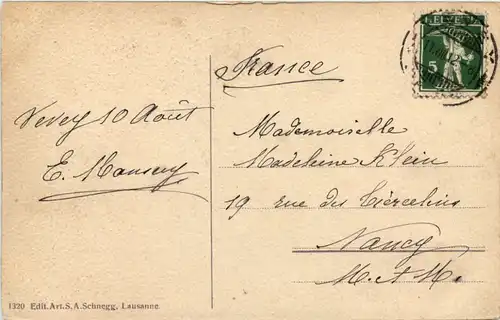 France
HELVETIA
5
Vevey 10 Août
E.
Mademoiselle
Madeleine Klein
19 rue des Tiercelins
Nancy
M. & M.
1320 Edit. Art. S. A. Schnegg, Lausanne